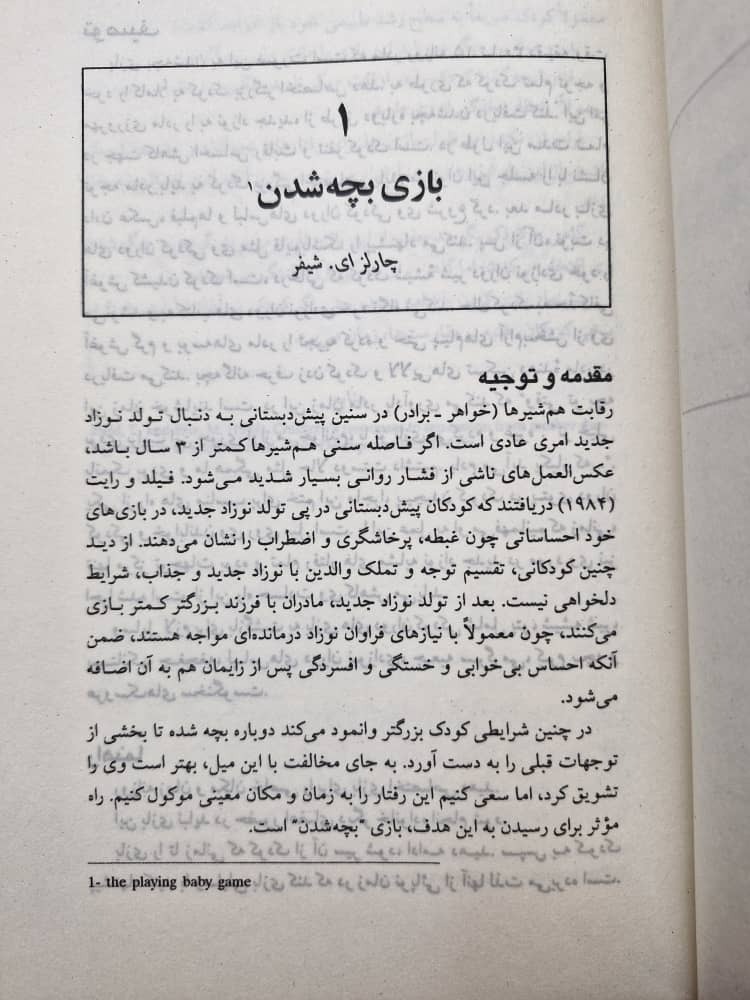 ۱
بازی بچه‌شدن۱
چارلز ای. شیفر
مقدمه و توجیه
رقابت هم‌شیرها (خواهر ـ برادر) در سنین پیش‌دبستانی به دنبال تولد نوزاد
جدید امری عادی است. اگر فاصله سنی هم‌شیرها کمتر از ۳ سال باشد،
عکس‌العمل‌های ناشی از فشار روانی بسیار شدید می‌شود. فیلد و رایت
(۱۹۸۴) دریافتند که کودکان پیش‌دبستانی در پی تولد نوزاد جدید، در بازی‌های
خود احساساتی چون غبطه، پرخاشگری و اضطراب را نشان می‌دهند. از دید
چنین کودکانی، تقسیم توجه و تملک والدین با نوزاد جدید و جذاب، شرایط
دلخواهی نیست. بعد از تولد نوزاد جدید، مادران با فرزند بزرگتر کمتر بازی
می‌کنند، چون معمولاً با نیازهای فراوان نوزاد درمانده‌ای مواجه هستند، ضمن
آنکه احساس بی‌خوابی و خستگی و افسردگی پس از زایمان هم به آن اضافه
می‌شود.
در چنین شرایطی کودک بزرگتر وانمود می‌کند دوباره بچه شده تا بخشی از
توجهات قبلی را به دست آورد. به جای مخالفت با این میل، بهتر است وی را
تشویق کرد، اما سعی کنیم این رفتار را به زمان و مکان معینی موکول کنیم. راه
مؤثر برای رسیدن به این هدف، بازی "بچه‌شدن" است.
1- the playing baby game